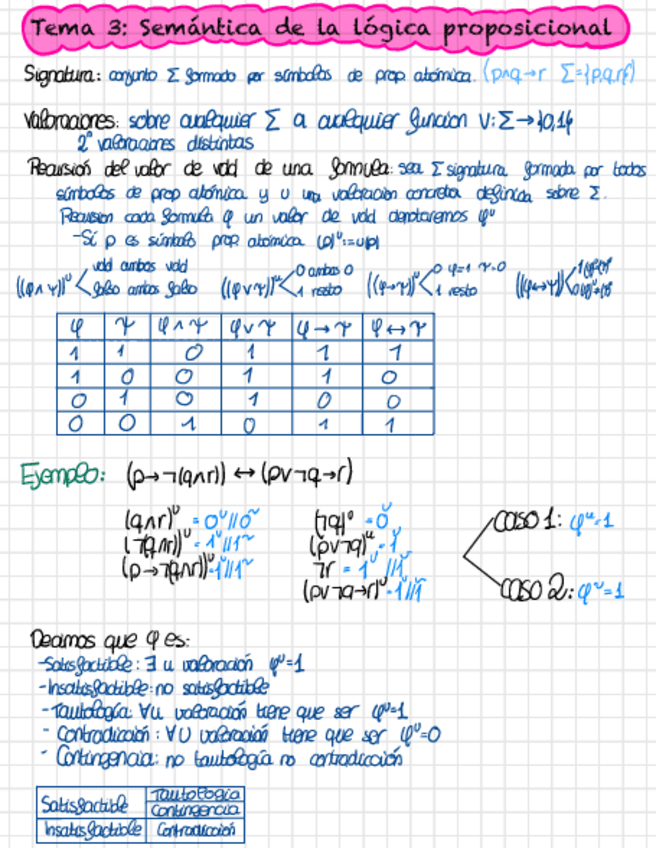 Tema 3: Semántica de la lógica proposicional
Signatura: conjunto Σ formado por símbolos de prop atómica. (p∧q→r Σ={p,q,r})
Valoraciones: sobre cualquier Σ a cualquier función v: Σ→{0,1}
2ⁿ valoraciones distintas
Recursión del valor de vdd de una formula: sea Σ signatura formada por todos
símbolos de prop atómica y υ una valoración concreta definida sobre Σ.
Recursion cada formula φ un valor de vdd denotaremos φᵛ
-Si p es símbolo prop. atómica (p)ᵛ:=υ(p)
((φ∧ψ))ᵛ < vdd ambos vdd ((φ∨ψ))ᵛ < 0 ambos 0 ((φ→ψ))ᵛ < 0 φ=1 ψ=0 ((φ↔ψ))ᵛ < 1 φᵛ=ψᵛ
falso ambos falso 1 resto 1 resto
φ ψ φ∧ψ φ∨ψ φ→ψ φ↔ψ
1 1 0 1 1 1
1 0 0 1 1 0
0 1 0 1 0 0
0 0 1 0 1 1
Ejemplo: (p→¬(q∧r)) ↔ (p∨¬q→r)
(q∧r)ᵛ = 0ᵛ//0~ (¬q)ᵛ = 0ᵛ CASO 1: φᵘ=1
(¬(q∧r))ᵛ = 1ᵛ//1~ (p∨¬q)ᵘ = 1ᵛ
(p→¬(q∧r))ᵛ = 1ᵛ//1~ ¬r = 1ᵛ//1~
(p∨¬q→r)ᵛ = 1//1~ CASO 2: φᵛ=1
Decimos que φ es:
-Satisfactible: ∃ υ valoración φᵛ=1
-Insatisfactible: no satisfactible
-Tautología: ∀υ valoración tiene que ser φᵛ=1
- Contradicción: ∀υ valoración tiene que ser φᵛ=0
- Contingencia: no tautología no contradicción
Satisfactible Tautología
Contingencia
Insatisfactible Contradicción